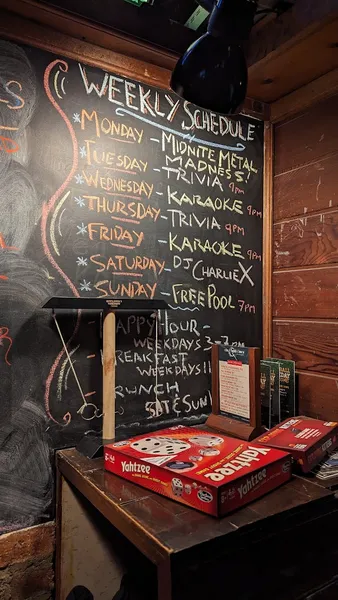 WEEKLY SCHEDULE
MONDAY - MIDNITE METAL MADNESS!
TUESDAY - TRIVIA 9PM
WEDNESDAY - KARAOKE 9PM
THURSDAY - TRIVIA 9PM
FRIDAY - KARAOKE 9PM
SATURDAY - DJ CHARLIE X
SUNDAY - FREE POOL 7PM
HAPPY HOUR -
WEEKDAYS
BREAKFAST
WEEKDAYS
BRUNCH
SAT & SUN
Yahtzee
Yahtzee
Yahtzee